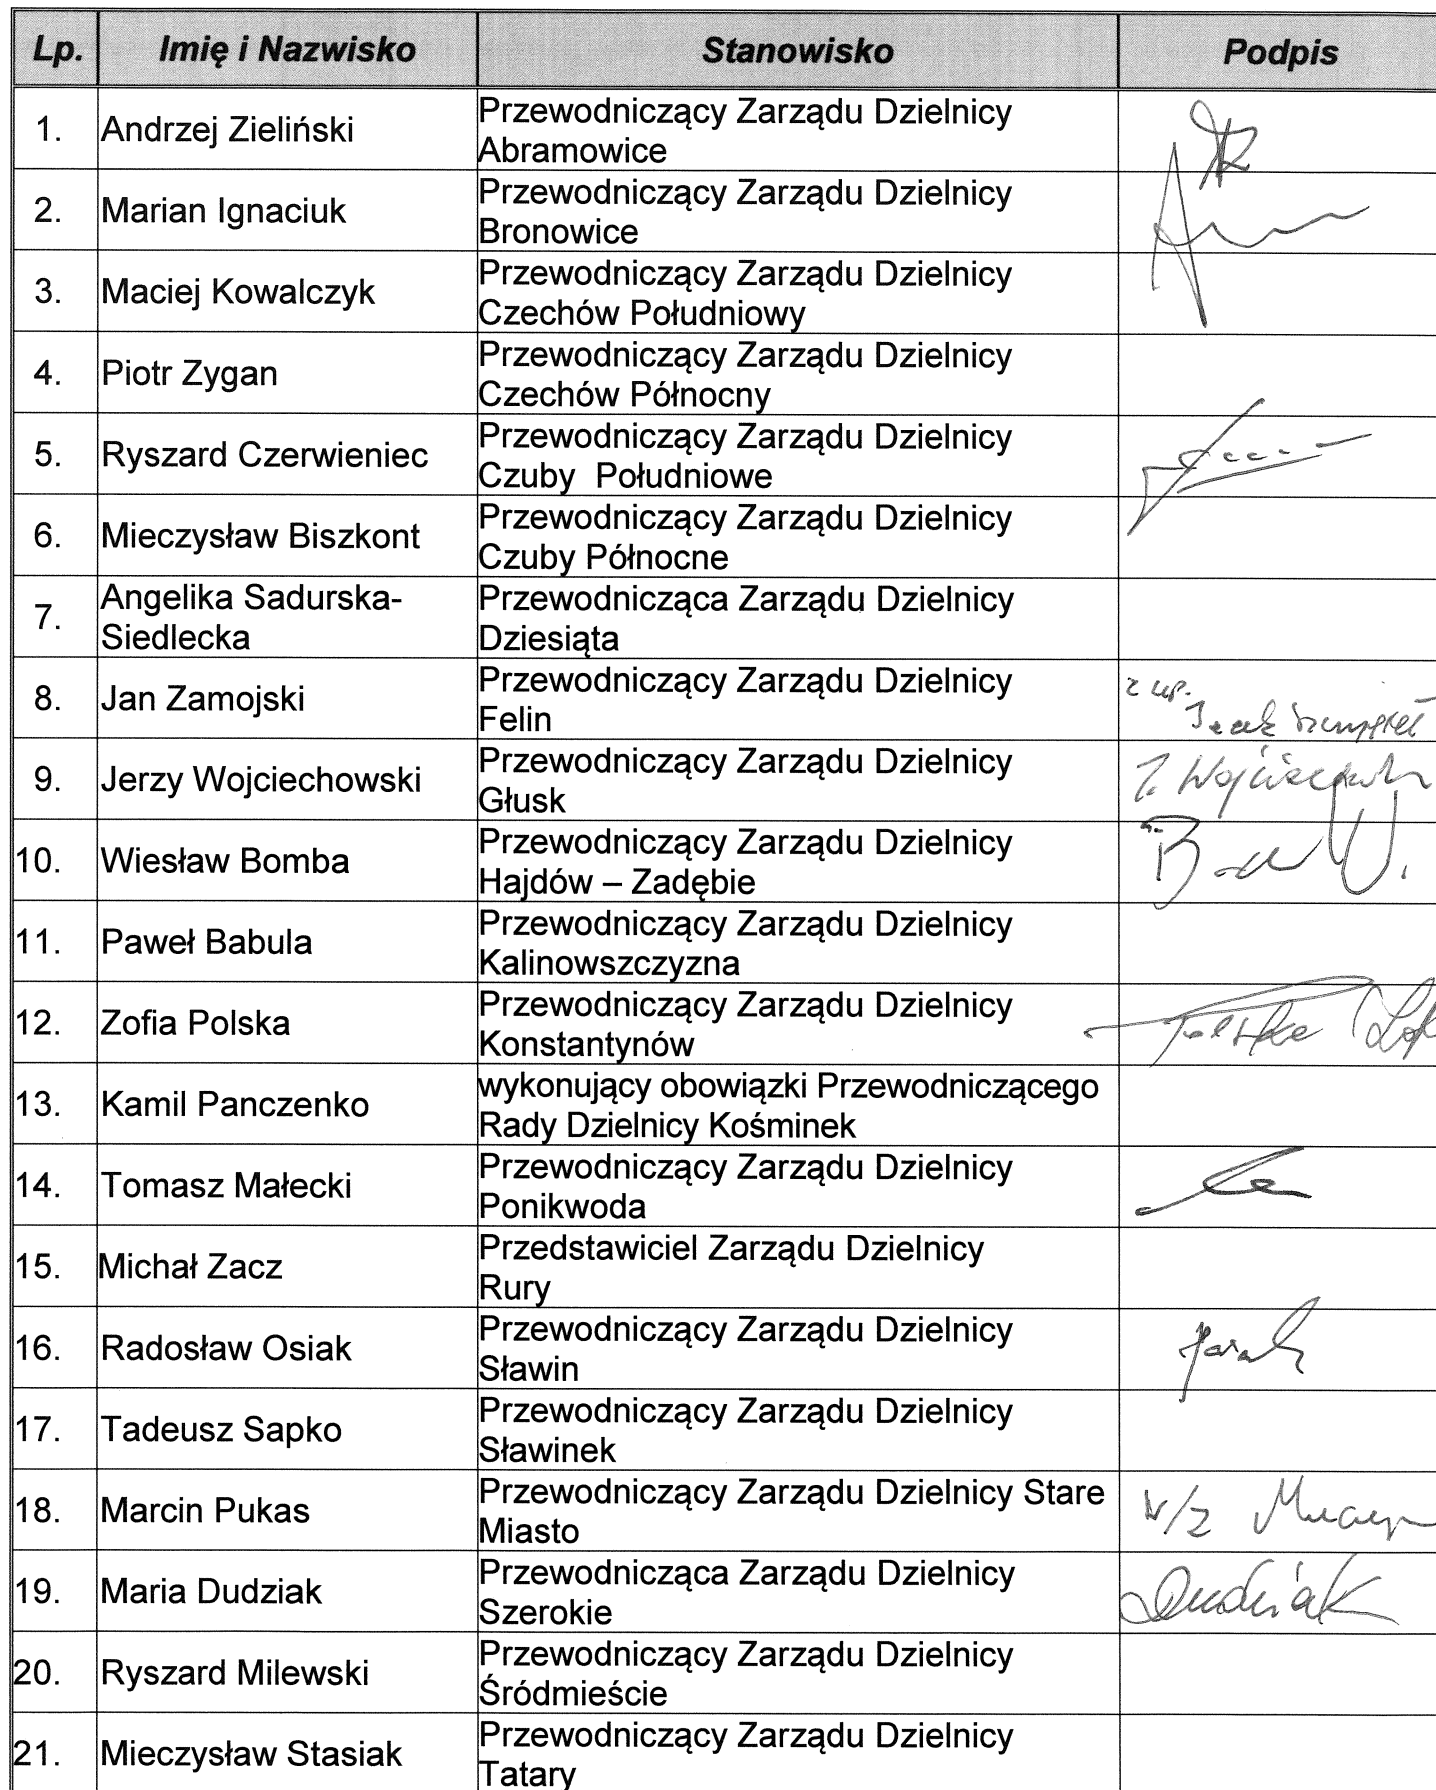 Lp. Imię i Nazwisko Stanowisko Podpis
1. Andrzej Zieliński Przewodniczący Zarządu Dzielnicy
Abramowice
2. Marian Ignaciuk Przewodniczący Zarządu Dzielnicy
Bronowice
3. Maciej Kowalczyk Przewodniczący Zarządu Dzielnicy
Czechów Południowy
4. Piotr Zygan Przewodniczący Zarządu Dzielnicy
Czechów Północny
5. Ryszard Czerwieniec Przewodniczący Zarządu Dzielnicy
Czuby Południowe
6. Mieczysław Biszkont Przewodniczący Zarządu Dzielnicy
Czuby Północne
7. Angelika Sadurska- Przewodnicząca Zarządu Dzielnicy
Siedlecka Dziesiąta
8. Jan Zamojski Przewodniczący Zarządu Dzielnicy z up.
Felin
9. Jerzy Wojciechowski Przewodniczący Zarządu Dzielnicy
Głusk
10. Wiesław Bomba Przewodniczący Zarządu Dzielnicy
Hajdów – Zadębie
11. Paweł Babula Przewodniczący Zarządu Dzielnicy
Kalinowszczyzna
12. Zofia Polska Przewodniczący Zarządu Dzielnicy
Konstantynów
13. Kamil Panczenko wykonujący obowiązki Przewodniczącego
Rady Dzielnicy Kośminek
14. Tomasz Małecki Przewodniczący Zarządu Dzielnicy
Ponikwoda
15. Michał Zacz Przedstawiciel Zarządu Dzielnicy
Rury
16. Radosław Osiak Przewodniczący Zarządu Dzielnicy
Sławin
17. Tadeusz Sapko Przewodniczący Zarządu Dzielnicy
Sławinek
18. Marcin Pukas Przewodniczący Zarządu Dzielnicy Stare w/z
Miasto
19. Maria Dudziak Przewodnicząca Zarządu Dzielnicy Dudziak
Szerokie
20. Ryszard Milewski Przewodniczący Zarządu Dzielnicy
Śródmieście
21. Mieczysław Stasiak Przewodniczący Zarządu Dzielnicy
Tatary